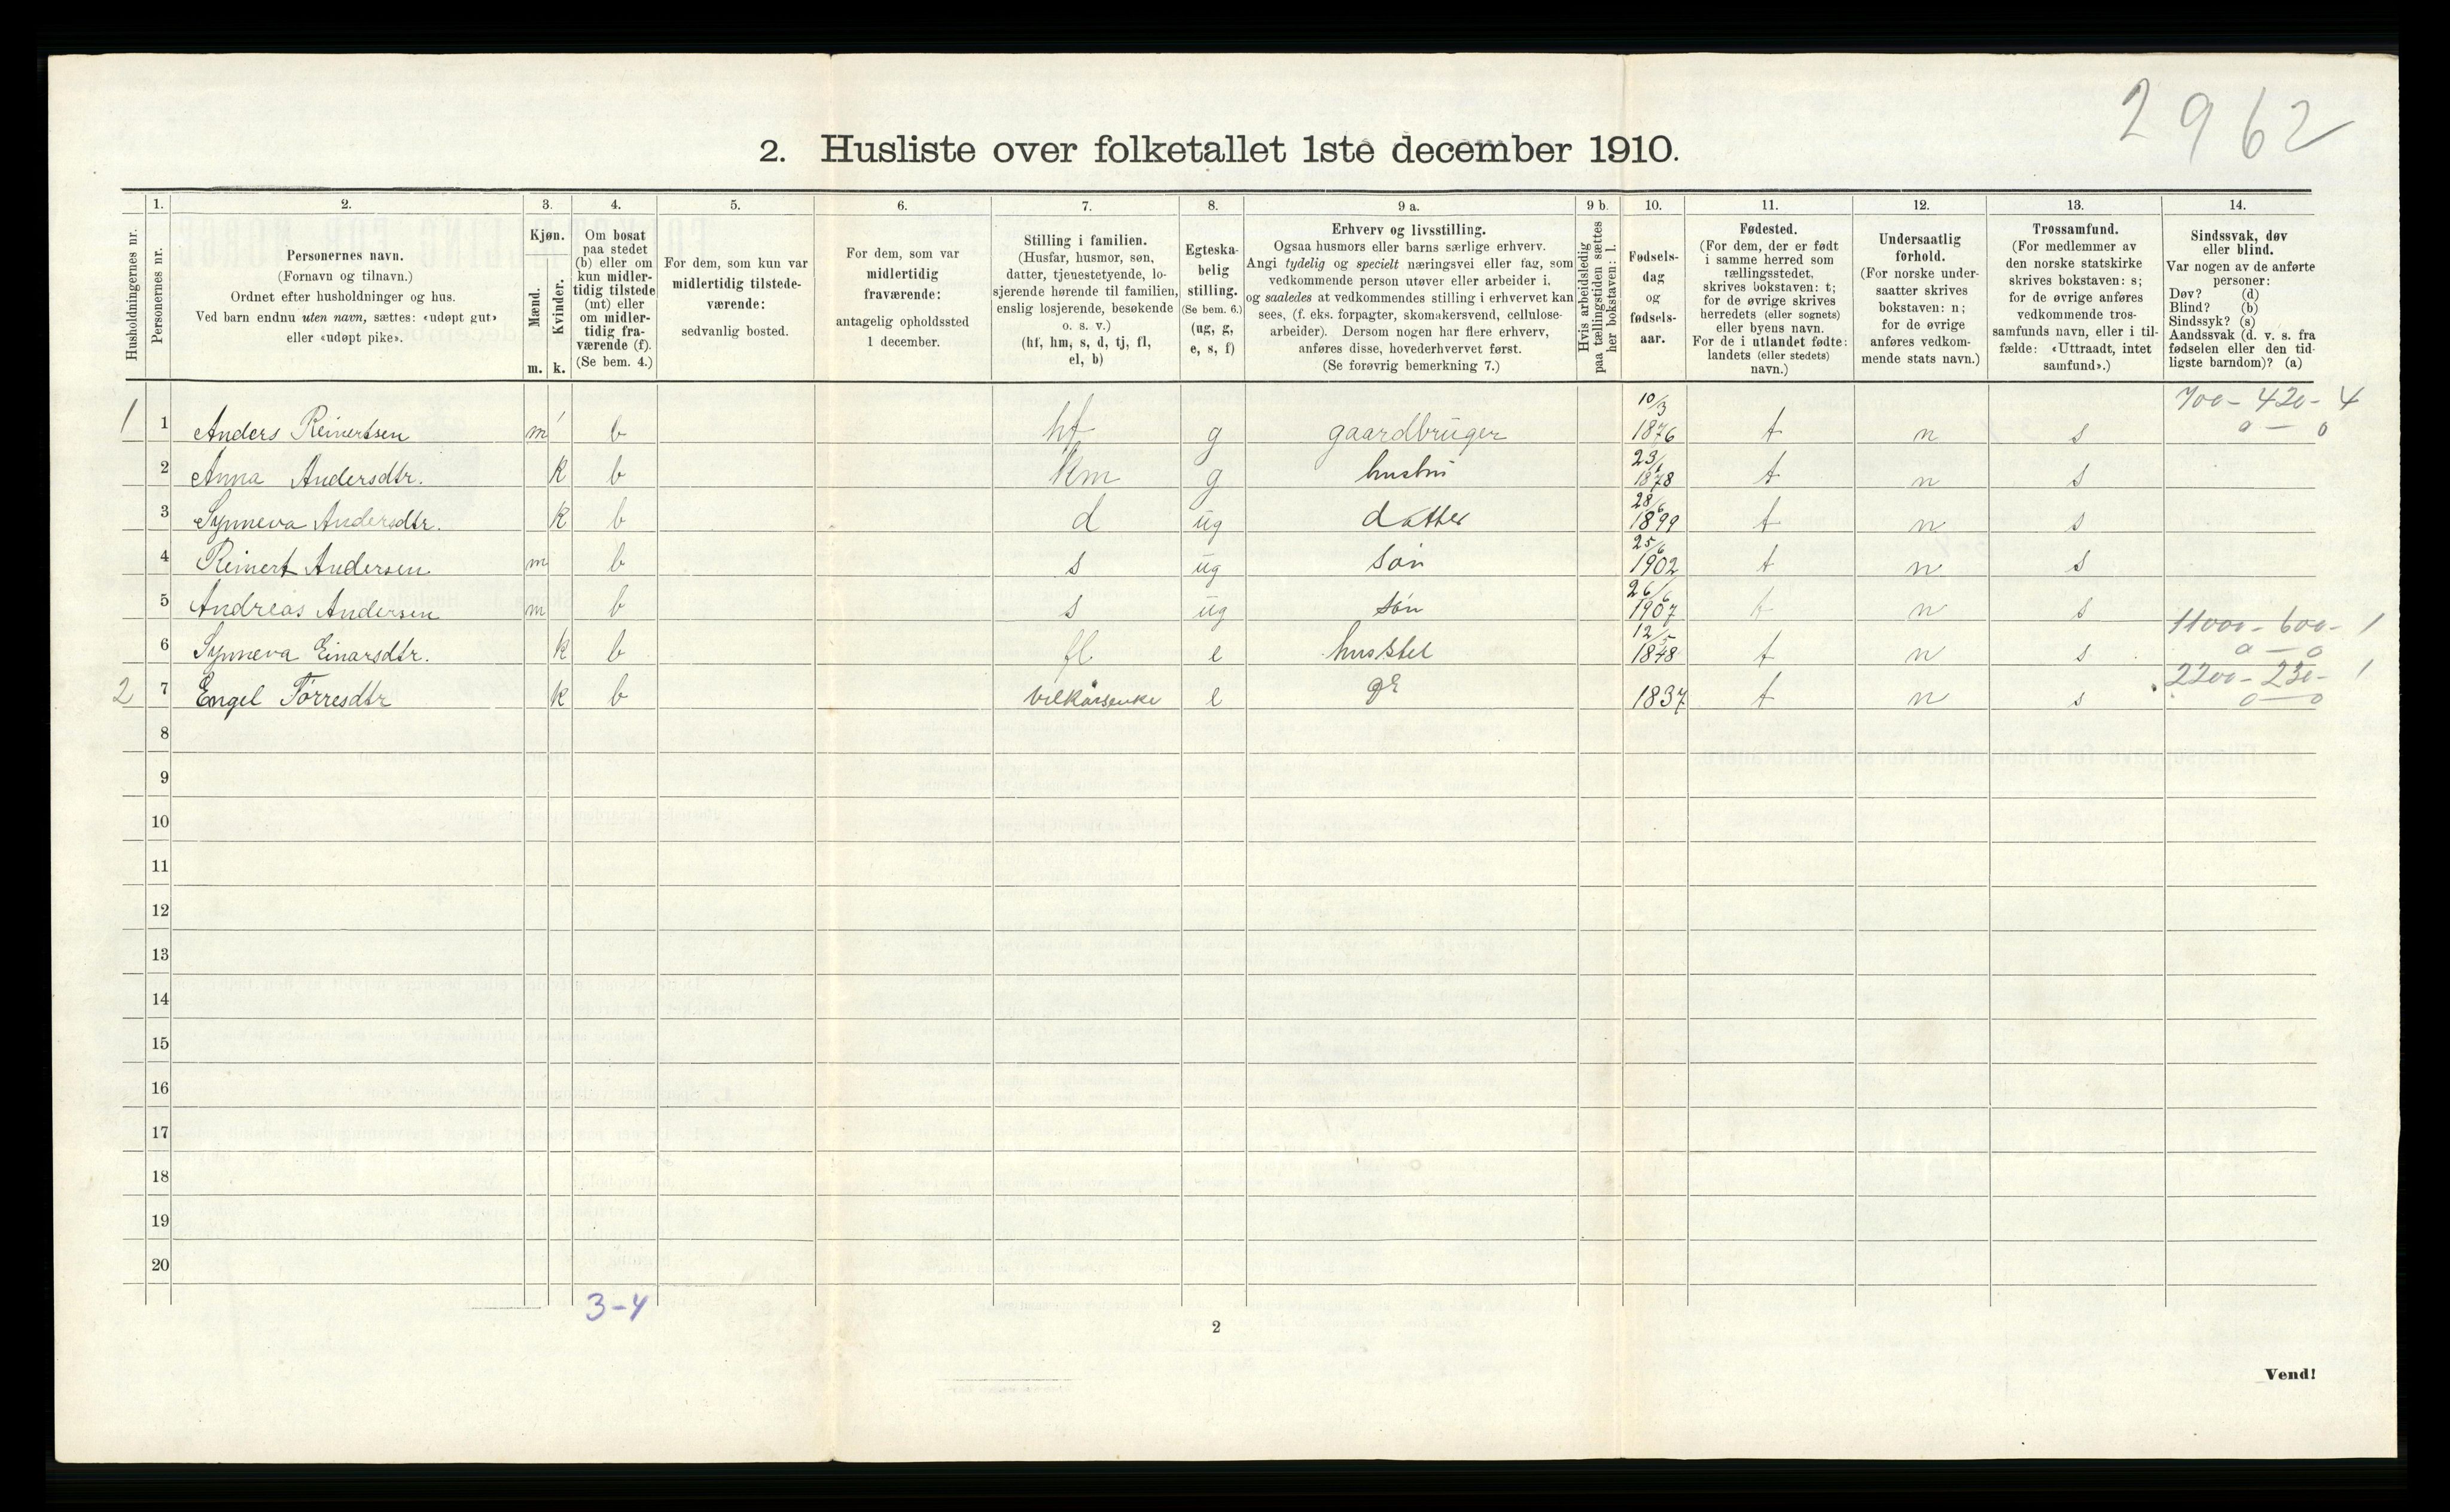 2962
2. Husliste over folketallet 1ste december 1910.
Husholdningernes nr.
1.
Personernes nr.
2.
Personernes navn.
(Fornavn og tilnavn.)
Ordnet efter husholdninger og hus.
Ved barn endnu uten navn, sættes: «udøpt gut»
eller «udøpt pike».
3.
Kjøn.
Mænd.
Kvinder.
m. k.
4.
Om bosat
paa stedet
(b) eller om
kun midler-
tidig tilstede
(mt) eller
om midler-
tidig fra-
værende (f).
(Se bem. 4.)
5.
For dem, som kun var
midlertidig tilstede-
værende:
sedvanlig bosted.
6.
For dem, som var
midlertidig
fraværende:
antagelig opholdssted
1 december.
7.
Stilling i familien.
(Husfar, husmor, søn,
datter, tjenestetyende, lo-
sjerende hørende til familien,
enslig losjerende, besøkende
o. s. v.)
(hf, hm, s, d, tj, fl,
el, b)
8.
Egteska-
belig
stilling.
(Se bem. 6.)
(ug, g,
e, s, f)
9 a.
Erhverv og livsstilling.
Ogsaa husmors eller barns særlige erhverv.
Angi tydelig og specielt næringsvei eller fag, som
vedkommende person utøver eller arbeider i,
og saaledes at vedkommendes stilling i erhvervet kan
sees, (f. eks. forpagter, skomakersvend, cellulose-
arbeider). Dersom nogen har flere erhverv,
anføres disse, hovederhvervet først.
(Se forøvrig bemerkning 7.)
9 b.
Hvis arbeidsledig
paa tællingstiden sættes
her bokstaven: l.
10.
Fødsels-
dag
og
fødsels-
aar.
11.
Fødested.
(For dem, der er født
i samme herred som
tællingsstedet,
skrives bokstaven: t;
for de øvrige skrives
herredets (eller sognets)
eller byens navn.
For de i utlandet fødte:
landets (eller stedets)
navn.)
12.
Undersaatlig
forhold.
(For norske under-
saatter skrives
bokstaven: n;
for de øvrige
anføres vedkom-
mende stats navn.)
13.
Trossamfund.
(For medlemmer av
den norske statskirke
skrives bokstaven: s;
for de øvrige anføres
vedkommende tros-
samfunds navn, eller i til-
fælde: «Uttraadt, intet
samfund».)
14.
Sindssvak, døv
eller blind.
Var nogen av de anførte
personer:
Døv? (d)
Blind? (b)
Sindssyk? (s)
Aandssvak (d. v. s. fra
fødselen eller den tid-
ligste barndom)? (a)
700 - 420 - 4
1 1 Anders Reinertsen m b hf g gaardbruger 10/3 1876 t n s 0 — 0
2 Anna Andersdtr. k b hm g hustru 23/ 1878 t n s
3 Synneva Andersdtr. k b d ug datter 28/6 1899 t n s
4 Reinert Andersen m b s ug søn 25/6 1902 t n s
5 Andreas Andersen m b s ug søn 26/6 1907 t n s
11000 - 600 - 1
6 Synneva Einarsdtr. k b fl e husstel 12/5 1848 t n s 0 — 0
2200 - 230 - 1
2 7 Engel Torresdtr k b vilkårsenke e 1837 t n s 0 — 0
8
9
10
11
12
13
14
15
16
17
18
19
20
3-4
2
Vend!